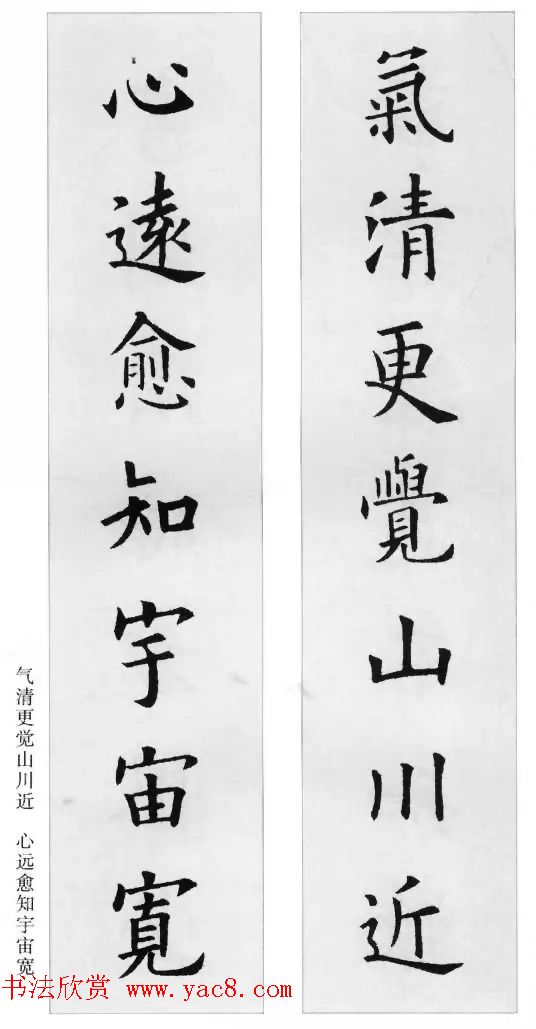 氣清更覺山川近
心遠愈知宇宙寬
气清更觉山川近 心远愈知宇宙宽
书法欣赏 www.yac8.com